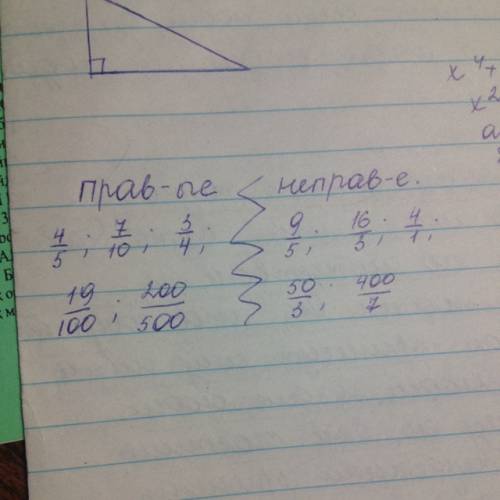 x⁴+
x²
a
прав-ые неправ-е.
4/5; 7/10; 3/4; 9/5; 16/5; 4/1;
19/100; 200/500 50/3; 400/7